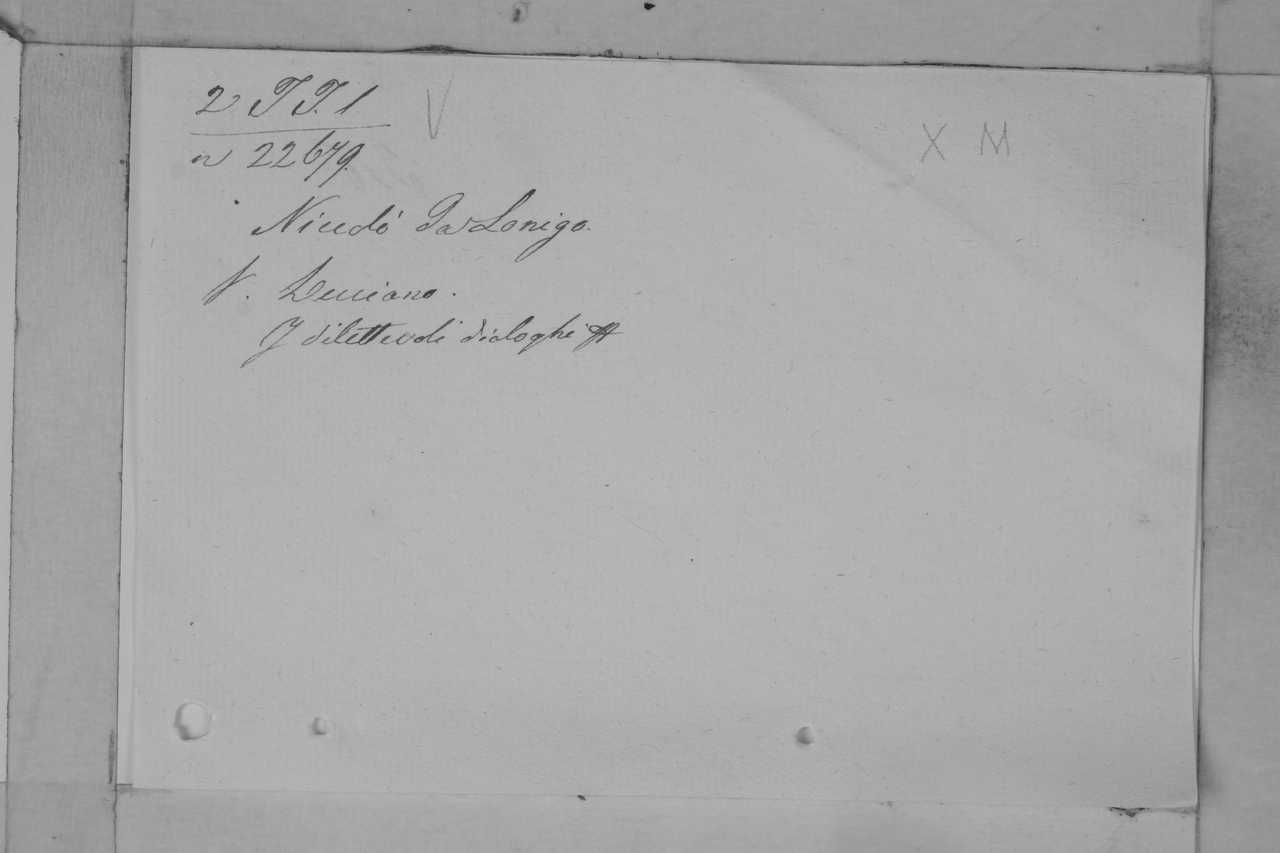 2 T T. 1 V
n 22679. X M
Nicolò Da Lonigo.
V. Luciano.
I dilettevoli dialoghi